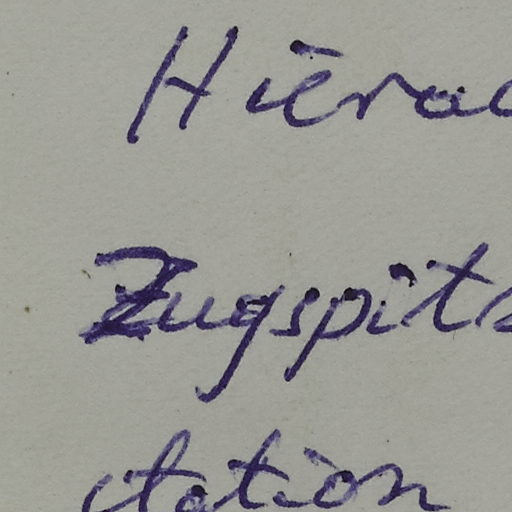 Hierac
Zugspitz
station